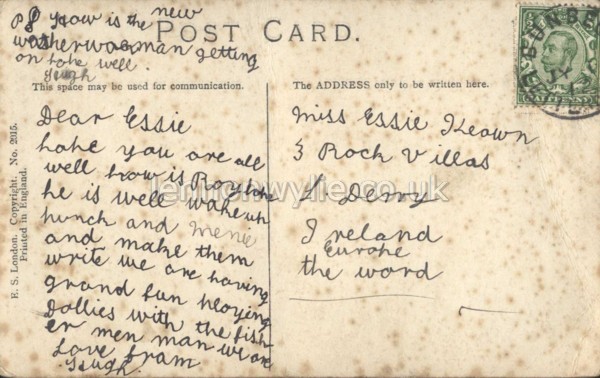 PS How is the new
washerwoman getting
on hope well.
Hugh
POST CARD.
This space may be used for communication.
The ADDRESS only to be written here.
Dear Essie
hope you are all
well how is Roy hope
he is well wake uh
hunch and menie
and make them
write we are having
grand fun hloying
Dollies with the fish
er men man we are
Love fram
Hugh
Miss Essie Keown
3 Roch Villas
L Derry
Ireland
Eurohe
the word
E. S. London. Copyright. No. 2015.
Printed in England.
DUNBE
HALFPENNY
lennonwylie.co.uk